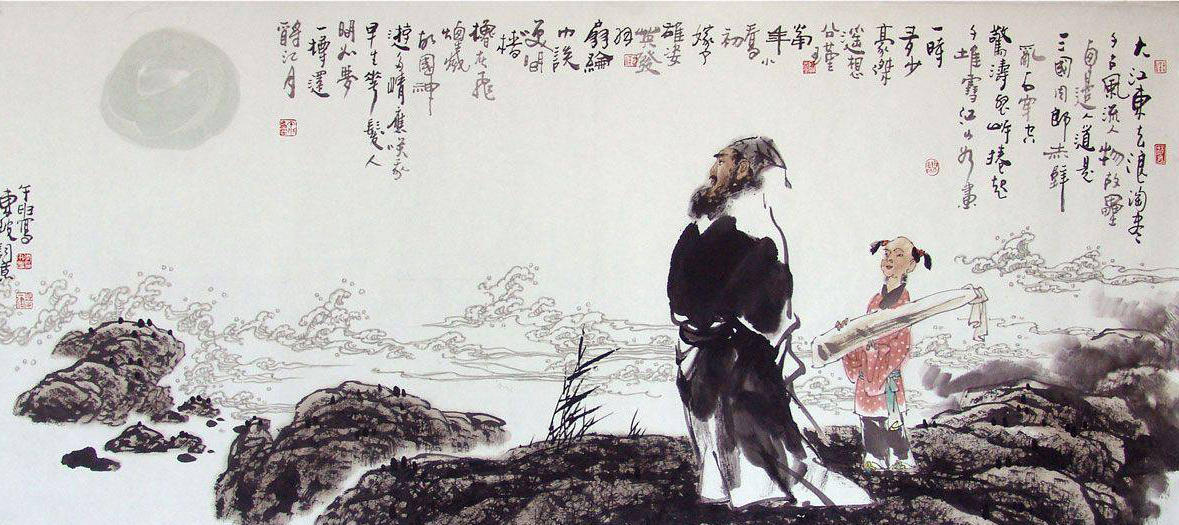 大江東去浪淘盡
千古風流人物故壘
西邊人道是
三國周郎赤壁
亂石穿空
驚濤裂岸捲起
千堆雪江山如畫
一時
多少
豪傑
遙想
公瑾
當
年小
喬初
嫁了
雄姿
英發
羽
扇綸
巾談
笑間
檣
櫓灰飛
煙滅
故國神
遊多情應笑我
早生華髮人
間如夢
一樽還
酹江月
寫
東坡詞意